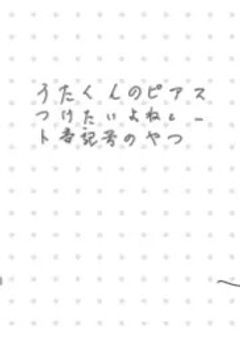 うたくんのピアス
つけたいよねぇ_
ト音記号のやつ